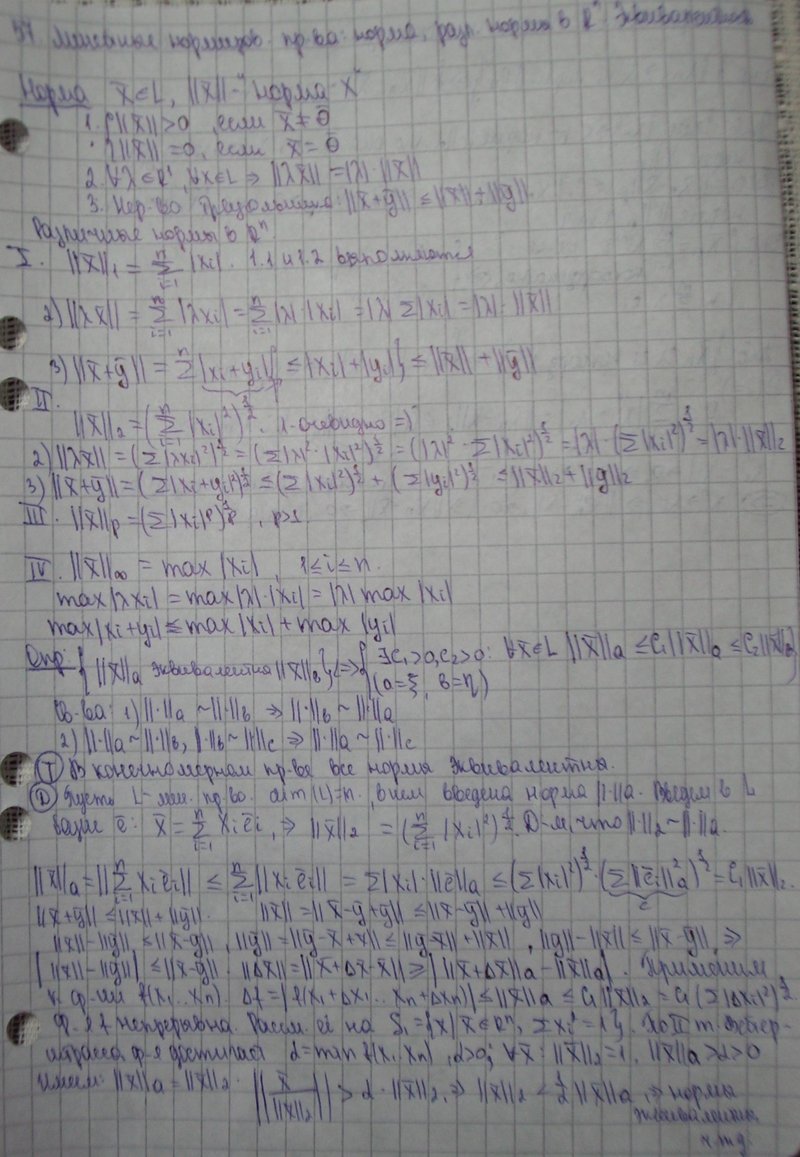 37. Линейные нормиров. пр-ва: норма, разл. нормы в R^n. Эквивалентность
Норма x̄∈L, ||x̄|| - "норма X"
1. {||x̄||>0, если x̄≠Θ̄
||x̄||=0, если x̄=Θ̄
2. ∀λ∈R¹, ∀x∈L ⇒ ||λx̄||=|λ|·||x̄||
3. Нер-во треугольника: ||x̄+ȳ|| ≤ ||x̄||+||ȳ||
Различные нормы в R^n
I. ||x̄||₁ = Σ_{i=1}^n |xi|. 1.1 и 1.2 выполняются
2) ||λx̄|| = Σ_{i=1}^n |λxi| = Σ_{i=1}^n |λ|·|xi| = |λ| Σ|xi| = |λ|·||x̄||
3) ||x̄+ȳ|| = Σ^n {|xi+yi| ≤ |xi|+|yi|} ≤ ||x̄||+||ȳ||
II.
||x̄||₂ = (Σ_{i=1}^n |xi|²)^{1/2}. 1-очевидно ⇒
2) ||λx̄|| = (Σ|λxi|²)^{1/2} = (Σ|λ|²·|xi|²)^{1/2} = (|λ|²·Σ|xi|²)^{1/2} = |λ|·(Σ|xi|²)^{1/2} = |λ|·||x̄||₂
3) ||x̄+ȳ|| = (Σ|xi+yi|²)^{1/2} ≤ (Σ|xi|²)^{1/2} + (Σ|yi|²)^{1/2} ≤ ||x̄||₂+||ȳ||₂
III. ||x̄||p = (Σ|xi|^p)^{1/p}, p>1.
IV. ||x̄||∞ = max |xi|, 1≤i≤n.
max|λxi| = max|λ|·|xi| = |λ| max |xi|
max|xi+yi| ≤ max|xi| + max |yi|
Опр: {||x̄||a эквивалентна ||x̄||в} ⇔ {∃C₁>0, C₂>0: ∀x̄∈L ||x̄||a ≤ C₁||x̄||a ≤ C₂||x̄||
(a=ξ, в=η)
Св-ва: 1) ||·||a ~ ||·||в ⇒ ||·||в ~ ||·||a
2) ||·||a ~ ||·||в, ||·||в ~ ||·||c ⇒ ||·||a ~ ||·||c
(Т) В конечномерном пр-ве все нормы эквивалентны.
(D) Пусть L - лин. пр-во. dim(L)=n, в нем введена норма ||·||a. Введем в L
базис ē: x̄ = Σ_{i=1}^n xi ēi, ⇒ ||x̄||₂ = (Σ_{i=1}^n |xi|²)^{1/2}. D-м, что ||·||₂ ~ ||·||a.
||x̄||a = ||Σ_{i=1}^n xi ēi|| ≤ Σ_{i=1}^n ||xi ēi|| = Σ|xi|·||ē||a ≤ (Σ|xi|²)^{1/2}·(Σ||ēi||²a)^{1/2} = C₁||x̄||₂.
||x̄+ȳ|| ≤ ||x̄||+||ȳ||. ||x̄|| = ||x̄-ȳ+ȳ|| ≤ ||x̄-ȳ||+||ȳ||
||x̄||-||ȳ|| ≤ ||x̄-ȳ||, ||ȳ|| = ||ȳ-x̄+x̄|| ≤ ||ȳ-x̄||+||x̄||, ||ȳ||-||x̄|| ≤ ||x̄-ȳ||, ⇒
| ||x̄||-||ȳ|| | ≤ ||x̄-ȳ||. ||Δx̄|| = ||x̄+Δx̄-x̄|| ≥ | ||x̄+Δx̄||a - ||x̄||a |. Применим
к ф-ции f(x₁...xn). Δf = |f(x₁+Δx₁... xn+Δxn)| ≤ ||x̄||a ≤ C₁||x̄||₂ = C₁(Σ|Δxi|²)^{1/2}.
ф-я f непрерывна. Рассм. её на S₁={x̄| x̄∈R^n, Σxi²=1}. По II т. Вейер-
штрасса ф-я достигает α=min f(x₁ xn), α>0; ∀x̄: ||x̄||₂=1, ||x̄||a > α > 0
Имеем: ||x̄||a = ||x̄||₂ · || x̄/||x̄||₂ || > α·||x̄||₂, ⇒ ||x̄||₂ < 1/α ||x̄||a, ⇒ нормы
эквивалентны
ч.т.д.